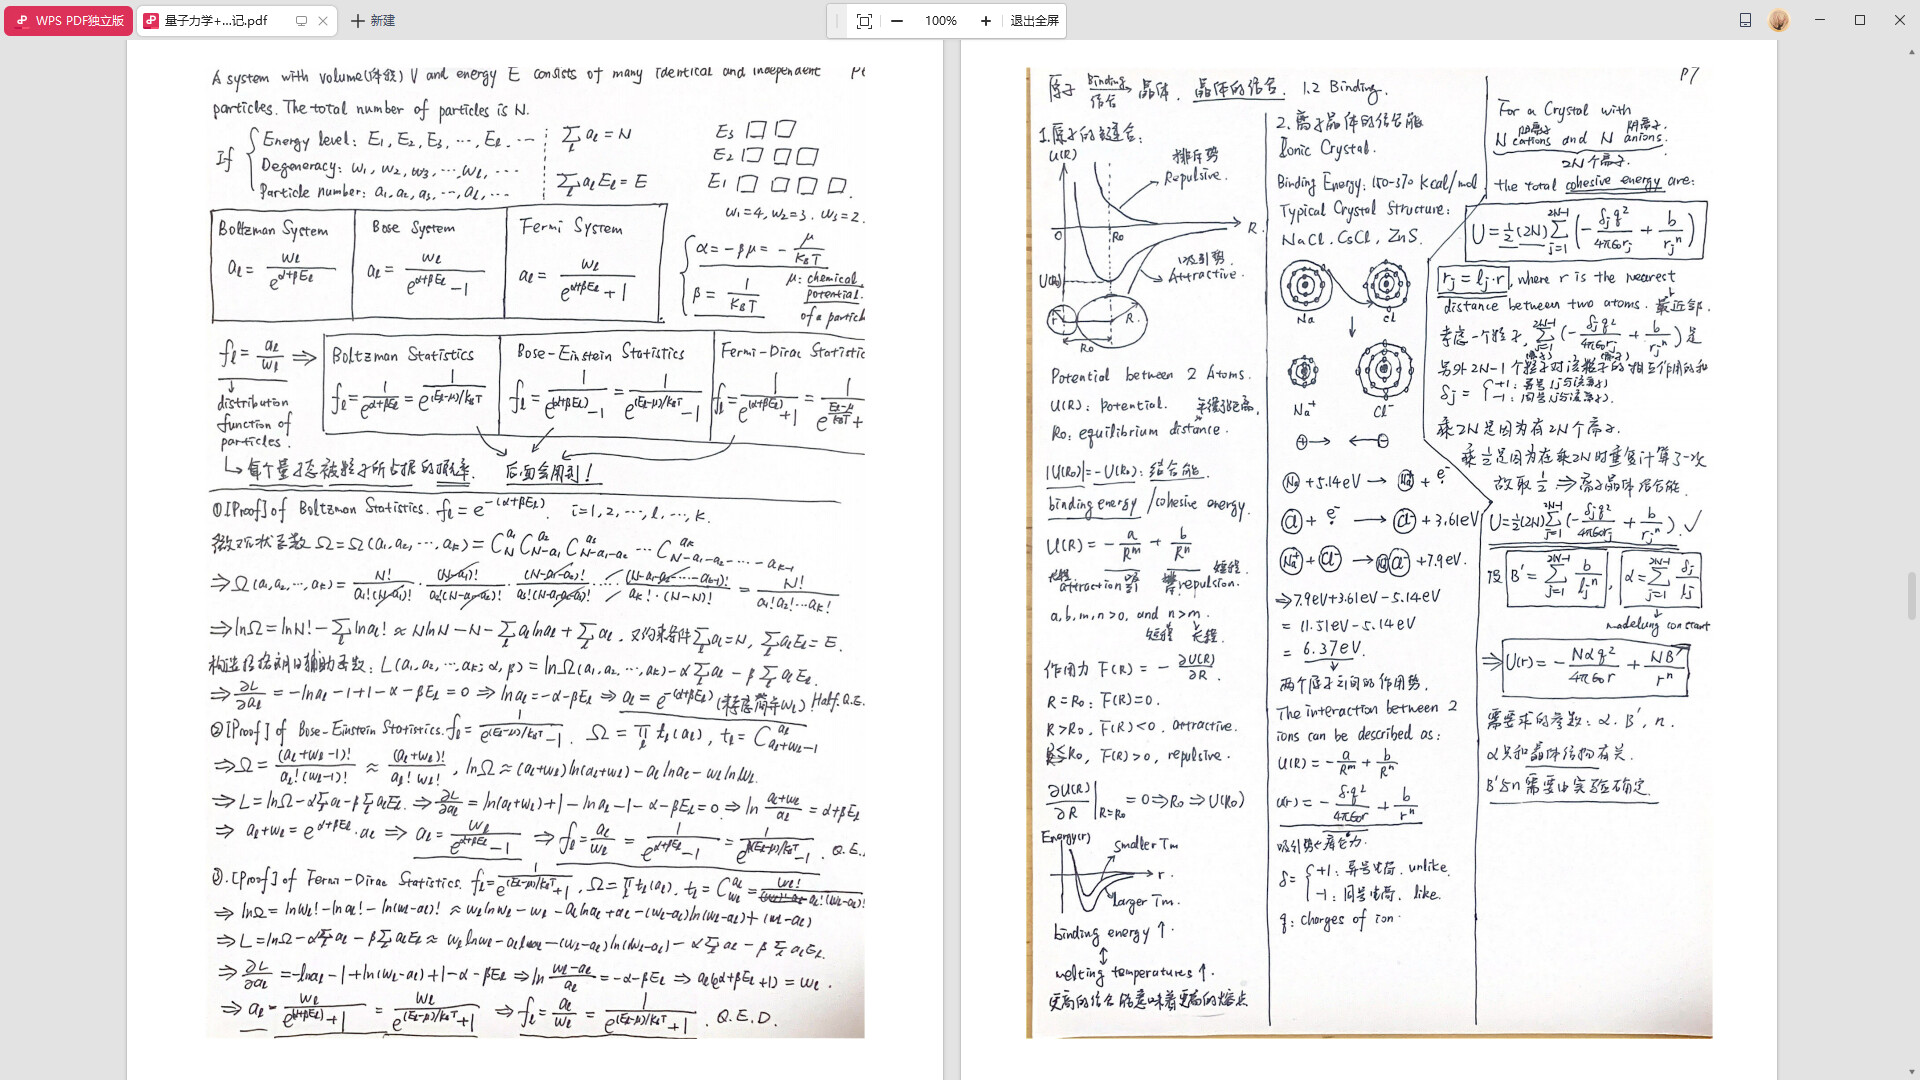 WPS PDF独立版
量子力学+...记.pdf
新建
100%
退出全屏
A system with volume(体积) V and energy E consists of many identical and independent
particles. The total number of particles is N.
If
Energy level: E₁, E₂, E₃, ⋯, Eₗ. ⋯
Degeneracy: w₁, w₂, w₃, ⋯, wₗ, ⋯
Particle number: a₁, a₂, a₃, ⋯, aₗ, ⋯
∑ₗ aₗ = N
∑ₗ aₗEₗ = E
E₃
E₂
E₁
w₁=4, w₂=3, w₃=2.
Boltzman System
aₗ = wₗ/e^(α+βEₗ)
Bose System
aₗ = wₗ/(e^(α+βEₗ) −1)
Fermi System
aₗ = wₗ/(e^(α+βEₗ) +1)
α = −βμ = −μ/(K_BT)
β = 1/(K_BT)
μ: chemical
potential
of a particle
fₗ = aₗ/wₗ ⇒
distribution
function of
particles.
Boltzman Statistics
fₗ = 1/e^(α+βEₗ) = 1/e^((Eₗ−μ)/k_BT)
Bose-Einstein Statistics
fₗ = 1/(e^(α+βEₗ) −1) = 1/(e^((Eₗ−μ)/k_BT) −1)
Fermi-Dirac Statistic
fₗ = 1/(e^(α+βEₗ) +1) =
↳ 每个量子态被粒子所占据的概率. 后面会用到!
①[Proof] of Boltzman Statistics. fₗ = e^−(α+βEₗ). i=1,2,⋯,l,⋯,k.
微观状态数 Ω=Ω(a₁,a₂,⋯,a_k) = C_N^a₁ C_(N−a₁)^a₂ C_(N−a₁−a₂)^a₃ ⋯ C_(N−a₁−a₂−⋯−a_(k−1))^a_k
⇒Ω(a₁,a₂,⋯,a_k) = N!/(a₁!(N−a₁)!) · (N−a₁)!/(a₂!(N−a₁−a₂)!) · (N−a₁−a₂)!/(a₃!(N−a₁−a₂−a₃)!) ⋯ (N−a₁−a₂−⋯−a_(k−1))!/(a_k!·(N−N)!) = N!/(a₁!a₂!⋯a_k!)
⇒lnΩ = lnN! − ∑ₗ lnaₗ! ≈ NlnN − N − ∑ₗ aₗlnaₗ + ∑ₗ aₗ. 又约束条件∑ₗ aₗ=N, ∑ₗ aₗEₗ = E.
构造拉格朗日辅助函数: L(a₁,a₂,⋯,a_k; α,β) = lnΩ(a₁,a₂,⋯,a_k) − α∑ₗ aₗ − β∑ₗ aₗEₗ.
⇒ ∂L/∂aₗ = −lnaₗ −1+1−α−βEₗ = 0 ⇒ lnaₗ = −α−βEₗ ⇒ aₗ = e^−(α+βEₗ) (未考虑简并wₗ) Half. Q.E.
②[Proof] of Bose-Einstein Statistics. fₗ = 1/(e^((Eₗ−μ)/k_BT) −1). Ω = ∏ₗ tₗ(aₗ), tₗ = C_(aₗ+wₗ−1)^aₗ
⇒Ω = (aₗ+wₗ−1)!/(aₗ!(wₗ−1)!) ≈ (aₗ+wₗ)!/(aₗ!wₗ!), lnΩ ≈ (aₗ+wₗ)ln(aₗ+wₗ) − aₗlnaₗ − wₗlnwₗ.
⇒ L = lnΩ − α∑aₗ − β∑aₗEₗ. ⇒ ∂L/∂aₗ = ln(aₗ+wₗ)+1−lnaₗ−1−α−βEₗ = 0 ⇒ ln (aₗ+wₗ)/aₗ = α+βEₗ
⇒ aₗ+wₗ = e^(α+βEₗ)·aₗ ⇒ aₗ = wₗ/(e^(α+βEₗ) −1) ⇒ fₗ = aₗ/wₗ = 1/(e^(α+βEₗ) −1) = 1/(e^((Eₗ−μ)/k_BT) −1). Q.E.
③.[Proof] of Fermi-Dirac Statistics. fₗ = 1/(e^((Eₗ−μ)/k_BT) +1), Ω = ∏ₗ tₗ(aₗ). tₗ = C_wₗ^aₗ = wₗ!/(aₗ!(wₗ−aₗ)!)
⇒ lnΩ = lnwₗ! − lnaₗ! − ln(wₗ−aₗ)! ≈ wₗlnwₗ − wₗ − aₗlnaₗ + aₗ − (wₗ−aₗ)ln(wₗ−aₗ) + (wₗ−aₗ)
⇒ L = lnΩ − α∑aₗ − β∑aₗEₗ ≈ wₗlnwₗ − aₗlnaₗ − (wₗ−aₗ)ln(wₗ−aₗ) − α∑ₗ aₗ − β∑ₗ aₗEₗ.
⇒ ∂L/∂aₗ = −lnaₗ −1+ln(wₗ−aₗ)+1−α−βEₗ ⇒ ln (wₗ−aₗ)/aₗ = −α−βEₗ ⇒ aₗ(e^(α+βEₗ) +1) = wₗ.
⇒ aₗ = wₗ/(e^(α+βEₗ) +1) = wₗ/(e^((Eₗ−μ)/k_BT) +1) ⇒ fₗ = aₗ/wₗ = 1/(e^((Eₗ−μ)/k_BT) +1). Q.E.D.
P7
原子 Binding 结合 → 晶体. 晶体的结合. 1.2 Binding.
U(R)
排斥势
Repulsive.
R.
0
R₀
U(R₀)
吸引势
Attractive.
r
R.
R₀
Potential between 2 Atoms.
U(R): potential.
R₀: equilibrium distance.
|U(R₀)| = −U(R₀): 结合能.
binding energy / cohesive energy.
U(R) = −a/R^m + b/R^n
长程 attraction 吸引
排斥 repulsion. 短程
a,b,m,n>0, and n>m.
短程 长程.
作用力 F(R) = −∂U(R)/∂R.
R=R₀: F(R)=0.
R>R₀, F(R)<0, attractive.
R<R₀, F(R)>0, repulsive.
∂U(R)/∂R |R=R₀ = 0 ⇒ R₀ ⇒ U(R₀)
Energy(r)
smaller Tm
r.
larger Tm.
binding energy ↑.
↕
melting temperatures ↑.
更高的结合能意味着更高的熔点
2.离子晶体的结合能
Ionic Crystal.
Binding Energy: 150-370 Kcal/mol
Typical Crystal Structure:
NaCl, CsCl, ZnS.
Na
Cl
Na⁺
Cl⁻
⊕→ ←⊖
Na +5.14eV → Na⁺ + e⁻
Cl + e⁻ → Cl⁻ + 3.61eV
Na⁺ + Cl⁻ → NaCl +7.9eV.
⇒7.9eV+3.61eV−5.14eV
= 11.51eV−5.14eV
= 6.37eV.
两个原子之间的作用势.
The interaction between 2
ions can be described as:
U(R) = −a/R^m + b/R^n
u(r) = −δ·q²/(4πε₀r) + b/r^n
吸引势←库仑力.
δ=
+1: 异号电荷. unlike.
−1: 同号电荷. like.
q: charges of ion.
For a Crystal with
阳离子 阴离子.
N cations and N anions.
2N个离子.
the total cohesive energy are:
U = ½(2N)∑_(j=1)^(2N−1) (−δⱼq²/(4πε₀rⱼ) + b/rⱼ^n)
rⱼ = lⱼ·r, where r is the nearest
distance between two atoms. 最近邻.
考虑一个粒子, ∑_(j=1)^(2N−1) (−δⱼq²/(4πε₀rⱼ) + b/rⱼ^n) 是
另外2N−1个粒子对该粒子的相互作用的和
δⱼ =
+1: 异号(j与该离子)
−1: 同号(j与该离子).
乘2N是因为有2N个离子.
乘½是因为在乘2N时重复计算了一次
故取½ ⇒离子晶体结合能.
U=½(2N)∑_(j=1)^(2N−1) (−δⱼq²/(4πε₀rⱼ) + b/rⱼ^n). ✓
设 B′ = ∑_(j=1)^(2N−1) b/lⱼ^n, α = ∑_(j=1)^(2N−1) δⱼ/lⱼ
madelung constant
⇒ U(r) = −Nαq²/(4πε₀r) + NB′/r^n
需要求的参数: α. B′, n.
α只和晶体结构有关.
B′与n需要由实验确定.